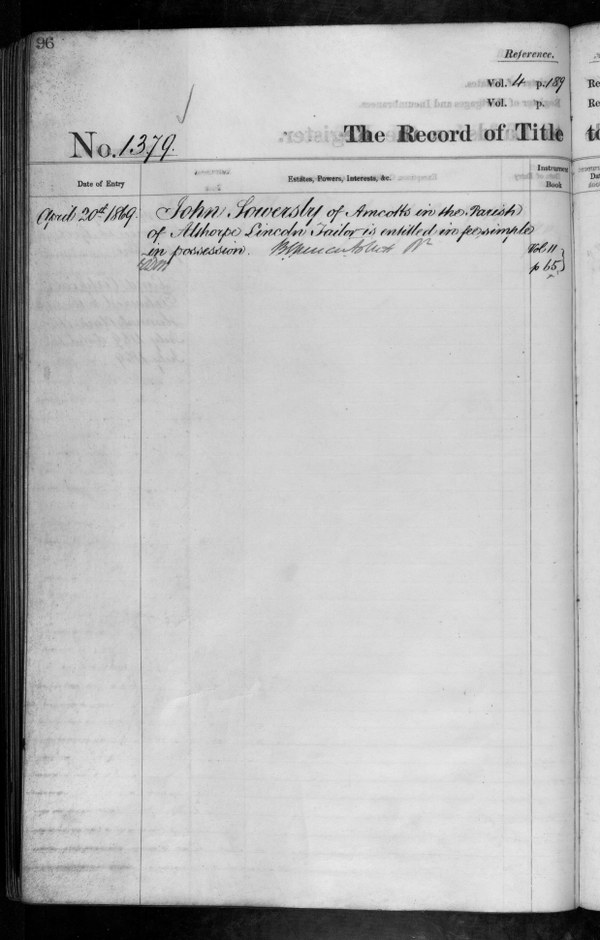 96
Reference.
Vol. 4 p. 189
Vol. p.
No. 1379.
The Record of Title
Date of Entry
Estates, Powers, Interests, &c.
Instrument
Book
April 20th 1869.
John Sowersby of Amcotts in the Parish
of Althorpe Lincoln Tailor is entitled in fee simple
in possession.
Vol: 11
p 65
Re
Re
to